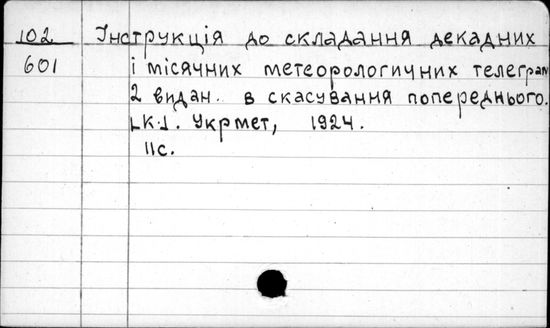 102
601
Інструкція до складання декадних
і місячних метеорологичних телеграм
2 видан. в скасування попереднього.
[К.]. Укрмет, 1924.
11с.